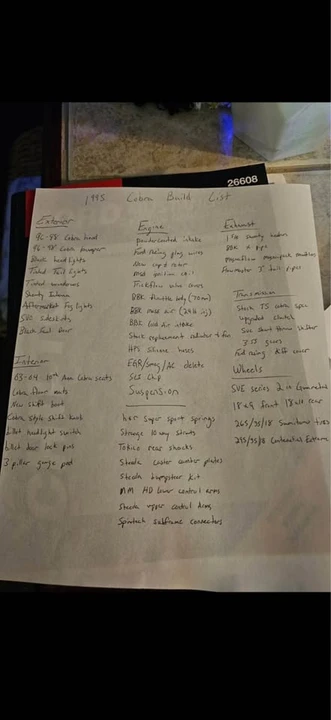 26608
1995 Cobra Build List
Exterior
96-98 Cobra hood
96-98 Cobra bumper
Black headlights
Tinted Tail lights
Tinted windows
Stanty Interior
Aftermarket Fog lights
SVO sideskirts
Black fuel door
Interior
03-04 10th Ann Cobra seats
Cobra floor mats
New shift boot
Cobra style shift knob
billet headlight switch
billet door lock pins
3 pillar gauge pod
Engine
powdercoated intake
Ford racing plug wires
New cap & rotor
MSD ignition coil
Trickflow valve covers
BBK throttle body (70mm)
BBK mass air (24lb inj)
BBK cold air intake
Stock replacement radiator + fan
HPS silicone hoses
EGR/Smog/AC deletes
SCT Chip
Suspension
H&R Super Sport springs
Strange 10 way Struts
Tokico rear shocks
Steeda caster camber plates
Steeda bumpsteer Kit
MM HD lower control arms
Steeda upper control Arms
Spintech subframe connectors
Exhaust
1 5/8 shorty headers
BBK X pipe
Magnaflow magnapack mufflers
Flowmaster 3" tail pipes
Transmission
Stock T5 cobra spec
Upgraded clutch
Short throw shifter
3.55 gears
Ford racing diff cover
Wheels
SVE series 2 in Gunmetal
18x9 front 18x10 rear
265/35/18 Sumitomo tires
295/35/18 Continental Extreme